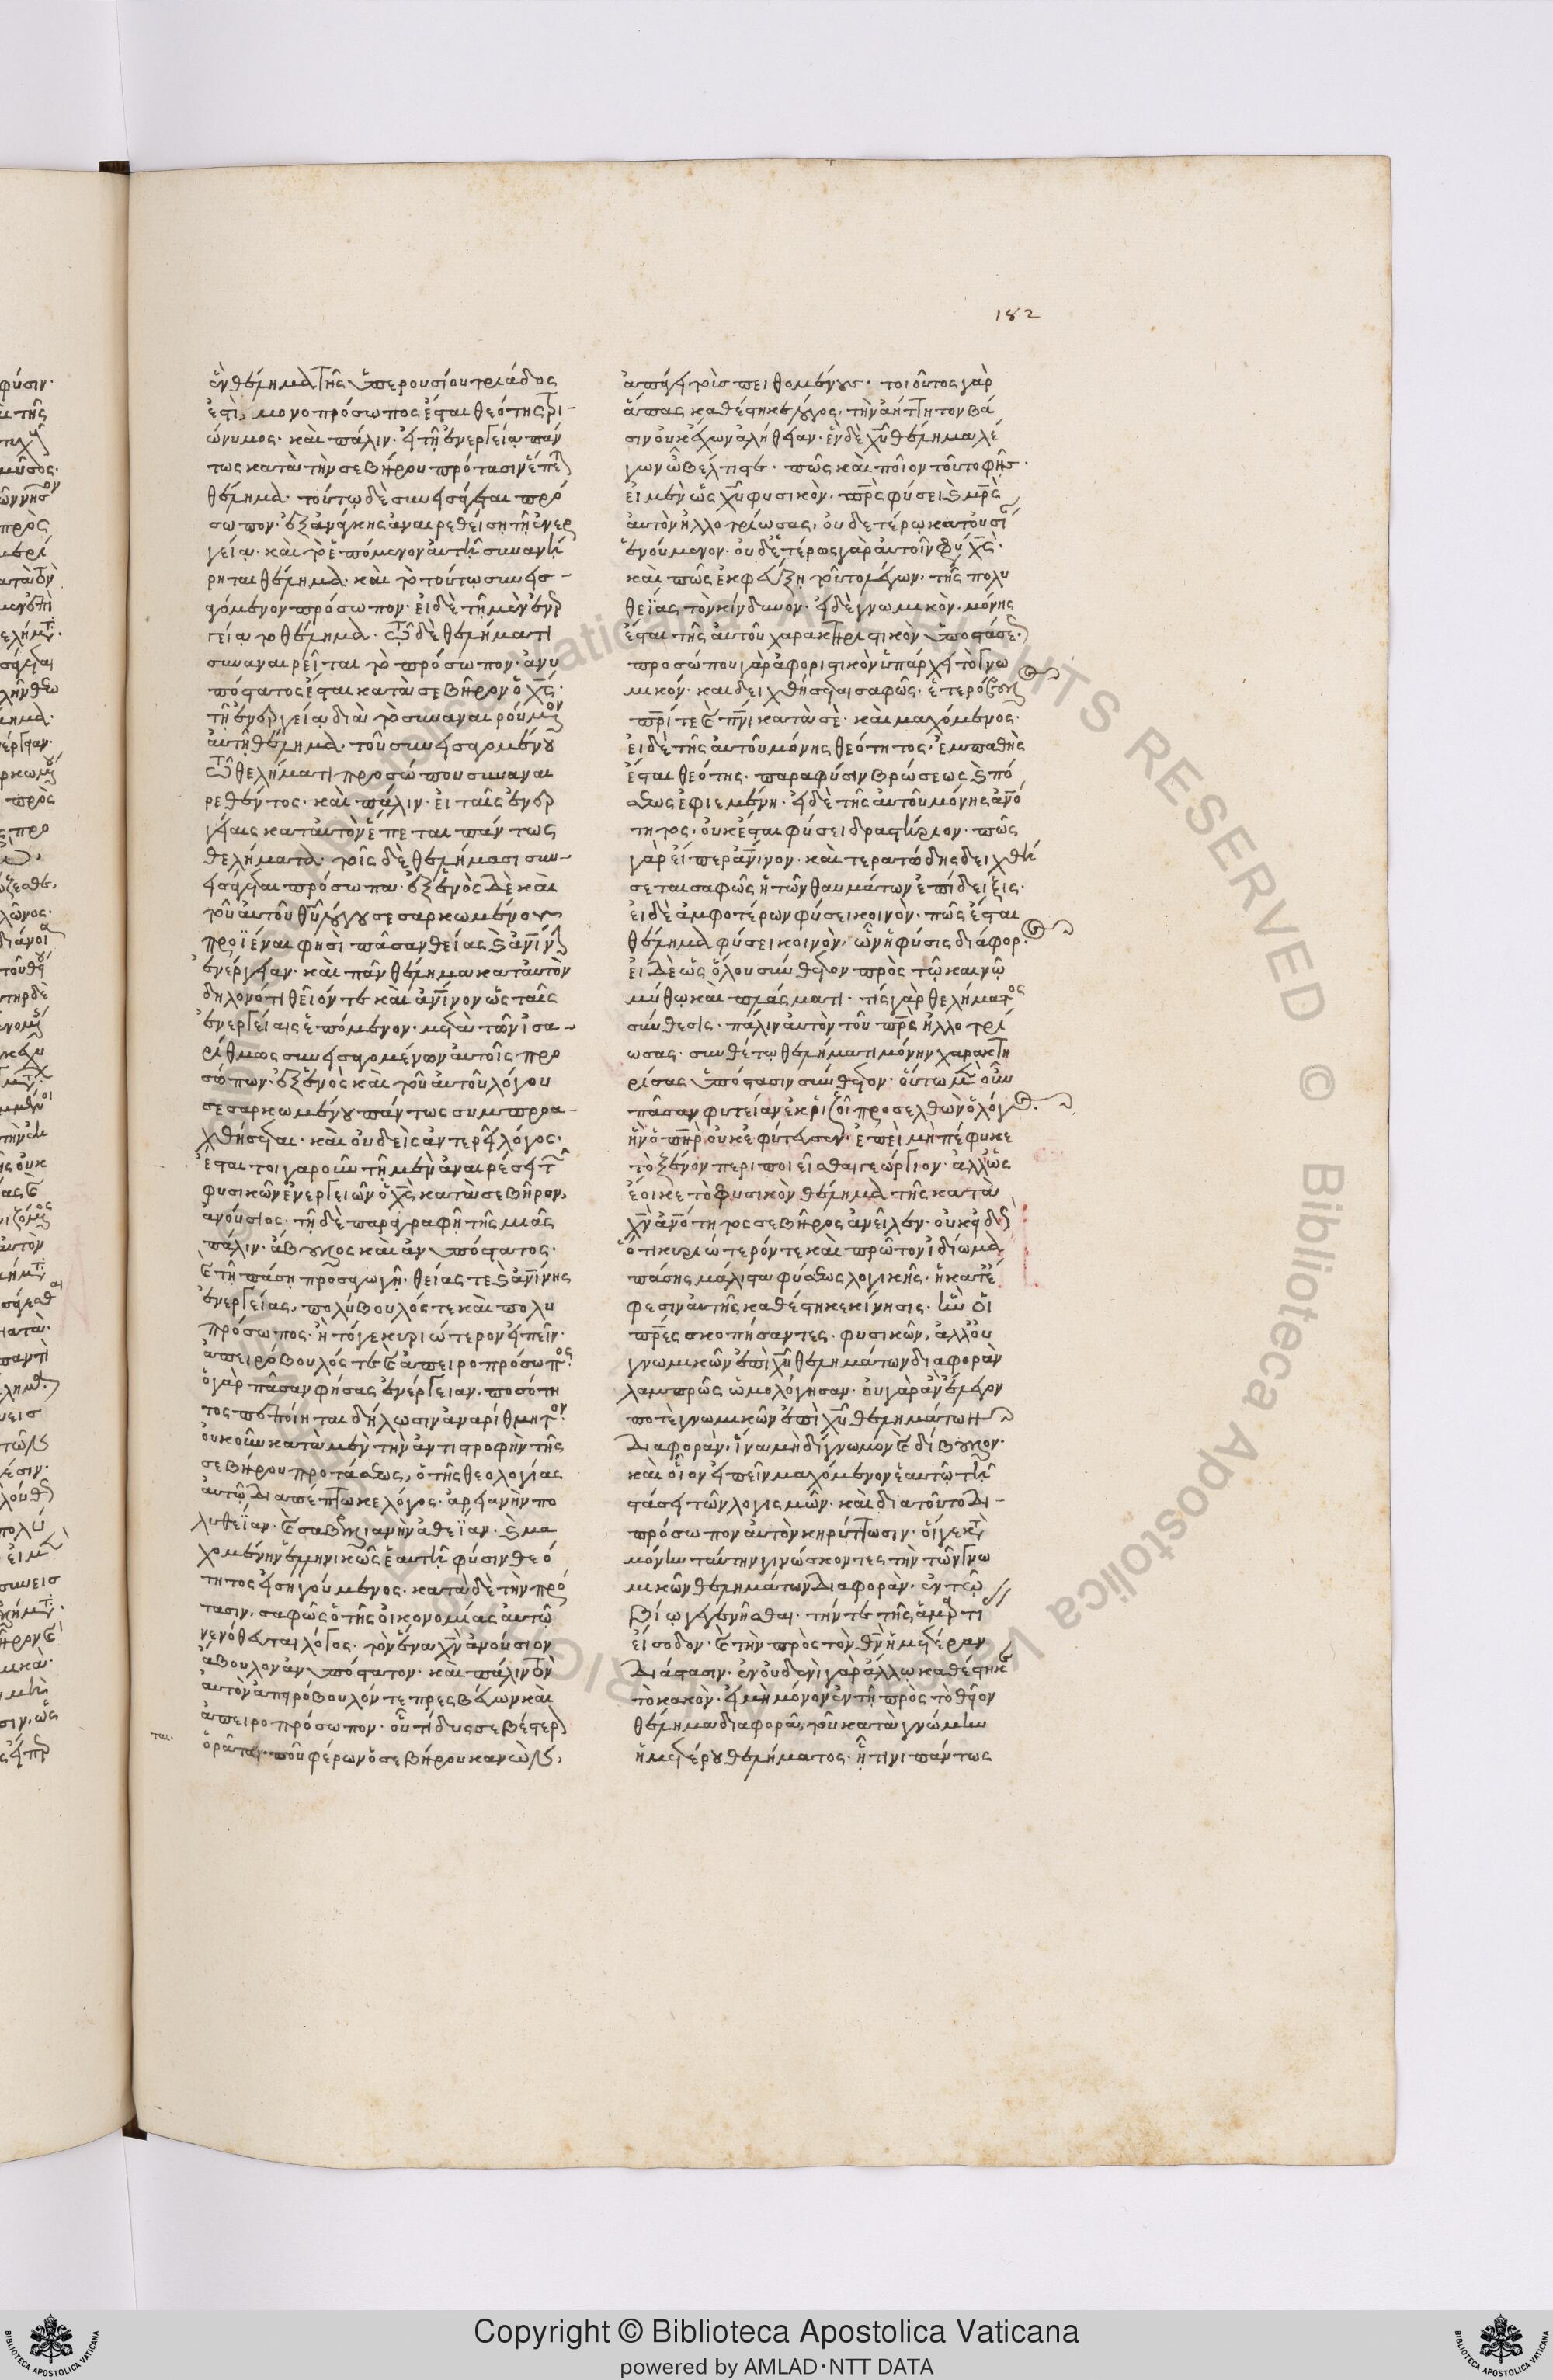 182
ἓν θέλημα τῆς ὑπερουσίου τριάδος
ἐστὶ, μονοπρόσωπος ἔσται θεότης τρι-
ώνυμος· καὶ πάλιν· εἰ τῇ ἐνεργείᾳ πάν
τως κατὰ τὴν σεβήρου πρότασιν ἕπεται
θέλημα· τούτῳ δὲ συνεισάγεται πρό
σωπον· ἐξ ἀνάγκης ἀναιρεθείσῃ τῇ ἐνερ
γείᾳ· καὶ τὸ ἑπόμενον αὐτῇ συνανή
ρηται θέλημα· καὶ τὸ τούτῳ συνεισ-
αγόμενον πρόσωπον· εἰ δὲ τῇ μὲν ἐνερ
γείᾳ τὸ θέλημα· τῷ δὲ θελήματι
συναναιρεῖται τὸ πρόσωπον· ἀνυ
πόστατος ἔσται κατὰ σεβῆρον ὁ χς·
τῇ ἐνεργείᾳ διὰ τὸ συναναιρούμενον
αὐτῇ θέλημα· τοῦ συνεισαγομένου
τῷ θελήματι προσώπου συναναι
ρεθέντος· καὶ πάλιν· εἰ ταῖς ἐνερ
γείαις κατ' αὐτὸν ἕπεται πάντως
θελήματα· τοῖς δὲ θελήμασι συν-
εισάγεται πρόσωπα· ἐξ ἑνὸς δὲ καὶ
τοῦ αὐτοῦ θυ λόγου σεσαρκωμένου
προϊέναι φησὶ πᾶσαν θείας καὶ ἀνίνης
ἐνέργειαν· καὶ πᾶν θέλημα κατ' αὐτὸν
δηλονότι θεῖόν τε καὶ ἀνινον ὡς ταῖς
ἐνεργείαις ἑπόμενον· μετὰ τῶν ἰσα-
ρίθμως συνεισαγομένων αὐτοῖς προ
σώπων· ἐξ ἑνὸς καὶ τοῦ αὐτοῦ λόγου
σεσαρκωμένου πάντως συμπροα-
χθήσεται· καὶ οὐδεὶς ἀντερεῖ λόγος·
ἔσται τοιγαροῦν τῇ μὲν ἀναιρέσει τῶν
φυσικῶν ἐνεργειῶν ὁ χς κατὰ σεβῆρον,
ἀνούσιος· τῇ δὲ παραγραφῇ τῆς μιᾶς
πάλιν· ἄβουλος καὶ ἀνυπόστατος·
καὶ τῇ πάσῃ προσαγωγῇ· θείας τε καὶ ἀνίνης
ἐνεργείας, πολύβουλός τε καὶ πολυ
πρόσωπος· ἢ τόγε κυριώτερον εἰπεῖν·
ἀπειρόβουλός τε καὶ ἀπειροπρόσωπος·
ὁ γὰρ πᾶσαν φήσας ἐνέργειαν, ποσότη
τος πεποίηται δήλωσιν ἀναρίθμητον·
οὐκοῦν κατὰ μὲν τὴν ἀντιστροφὴν τῆς
σεβήρου προτάσεως, ὁ τῆς θεολογίας
αὐτῷ διαπέπτωκε λόγος· ἀρειανὴν πο
λυθεΐαν· καὶ σαβελλιανὴν ἀθεΐαν· καὶ μα
χομένην ἑλληνικῶς ἑαυτῇ φύσιν θεό
τητος εἰσηγούμενος· κατὰ δὲ τὴν πρό
τασιν, σαφῶς ὁ τῆς οἰκονομίας αὐτῷ
νενόθευται λόγος. τὸν ἕνα χν ἀνούσιον
ἄβουλον ἀνυπόστατον· καὶ πάλιν τὸν
αὐτὸν ἀπειρόβουλόν τε πρεσβεύων καὶ
ἀπειροπρόσωπον· οὗ τί δυσσεβέστερον
ὁρᾶται· ποῦ φέρων ὁ σεβήρου κανὼν
ἀπάγει τοὺς πειθομένους· τοιοῦτος γὰρ
ἅπας καθέστηκε λόγος, τὴν ἀήττητον βά
σιν οὐκ ἔχων ἀλήθειαν· ἓν δὲ χυ θέλημα λέ
γων ὦ βέλτιστε· πῶς καὶ ποῖον τοῦτο φῇς·
εἰ μὲν ὡς χυ φυσικὸν· πρς φύσει καὶ μρς
αὐτὸν ἠλλοτρίωσας, οὐδετέρῳ κατ' οὐσίαν
ἑνούμενον· οὐδετέρως γὰρ αὐτοῖν χς·
καὶ πῶς ἐκφεύξῃ τοῦτο λέγων, τῆς πολυ
θεΐας τὸν κίνδυνον· εἰ δὲ γνωμικὸν· μόνης
ἔσται τῆς αὐτοῦ χαρακτηριστικὸν ὑποστάσεως
προσώπου γὰρ ἀφοριστικὸν ὑπάρχει τὸ γνω
μικόν· καὶ δειχθήσεται σαφῶς· ἑτερόβουλος
πρί τε καὶ πνι κατὰ σὲ· καὶ μαχόμενος·
εἰ δὲ τῆς αὐτοῦ μόνης θεότητος· ἐμπαθὴς
ἔσται θεότης· παρὰ φύσιν βρώσεως καὶ πό
σεως ἐφιεμένη· εἰ δὲ τῆς αὐτοῦ μόνης ἀνό
τητος, οὐκ ἔσται φύσει δραστήριον· πῶς
γὰρ εἴπερ ἀνινον· καὶ τερατώδης δειχθή
σεται σαφῶς ἡ τῶν θαυμάτων ἐπίδειξις·
εἰ δὲ ἀμφοτέρων φύσει κοινὸν· πῶς ἔσται
θέλημα φύσει κοινὸν, ὧν ἡ φύσις διάφορος·
εἰ δὲ ὡς ὅλου σύνθετον πρὸς τῷ καινῷ
μύθῳ καὶ πλάσματι· τίς γὰρ θελήματος
σύνθεσις· πάλιν αὐτὸν τοῦ πρς ἠλλοτρί
ωσας· συνθέτῳ θελήματι μόνην χαρακτη
ρίσας ὑπόστασιν σύνθετον· οὕτω μὲν οὖν
πᾶσαν φυτείαν ἐκριζοῖ προσελθὼν ὁ λόγος·
ἣν ὁ πηρ οὐκ ἐφύτευσεν· ἐπεὶ μὴ πέφυκε
τὸ ξένον περιποιεῖσθαι γεώργιον· ἀλλ' ὡς
ἔοικε τὸ φυσικὸν θέλημα τῆς κατὰ
χν ἀνότητος σεβῆρος ἀνεῖλεν· οὐκ εἰδὼς
ὅτι κυριώτερόν τε καὶ πρῶτον ἰδίωμα
πάσης μάλιστα φύσεως λογικῆς· ἡ κατ' ἔ
φεσιν αὐτῆς καθέστηκε κίνησις· ἣν οἱ
πρες σκοπήσαντες· φυσικῶν, ἀλλ' οὐ
γνωμικῶν ἐπὶ χυ θελημάτων διαφορὰν
λαμπρῶς ὡμολόγησαν· οὐ γὰρ ἂν ἔλεγον
ποτὲ γνωμικῶν ἐπὶ χυ θελημάτων
διαφορὰν, ἵνα μὴ δίγνωμον καὶ δίβουλον·
καὶ οἷον εἰπεῖν μαχόμενον ἑαυτῷ τῇ
στάσει τῶν λογισμῶν· καὶ διατοῦτο δι-
πρόσωπον αὐτὸν κηρύττωσιν· οἵγε κατὰ
μόνην ταύτην γινώσκοντες τὴν τῶν γνω
μικῶν θελημάτων διαφορὰν· ἐν τῷ
βίῳ γεγενῆσθαι· τήν τε τῆς ἁμαρτίας
εἴσοδον· καὶ τὴν πρὸς τὸν θν ἡμετέραν
διάστασιν· ἐν οὐδενὶ γὰρ ἄλλῳ καθέστηκε
τὸ κακὸν· εἰ μὴ μόνον ἐν τῇ πρὸς τὸ θεῖον
θέλημα διαφορᾷ, τοῦ κατὰ γνώμην
ἡμετέρου θελήματος· ᾗ τινι πάντως
Copyright © Biblioteca Apostolica Vaticana
powered by AMLAD·NTT DATA